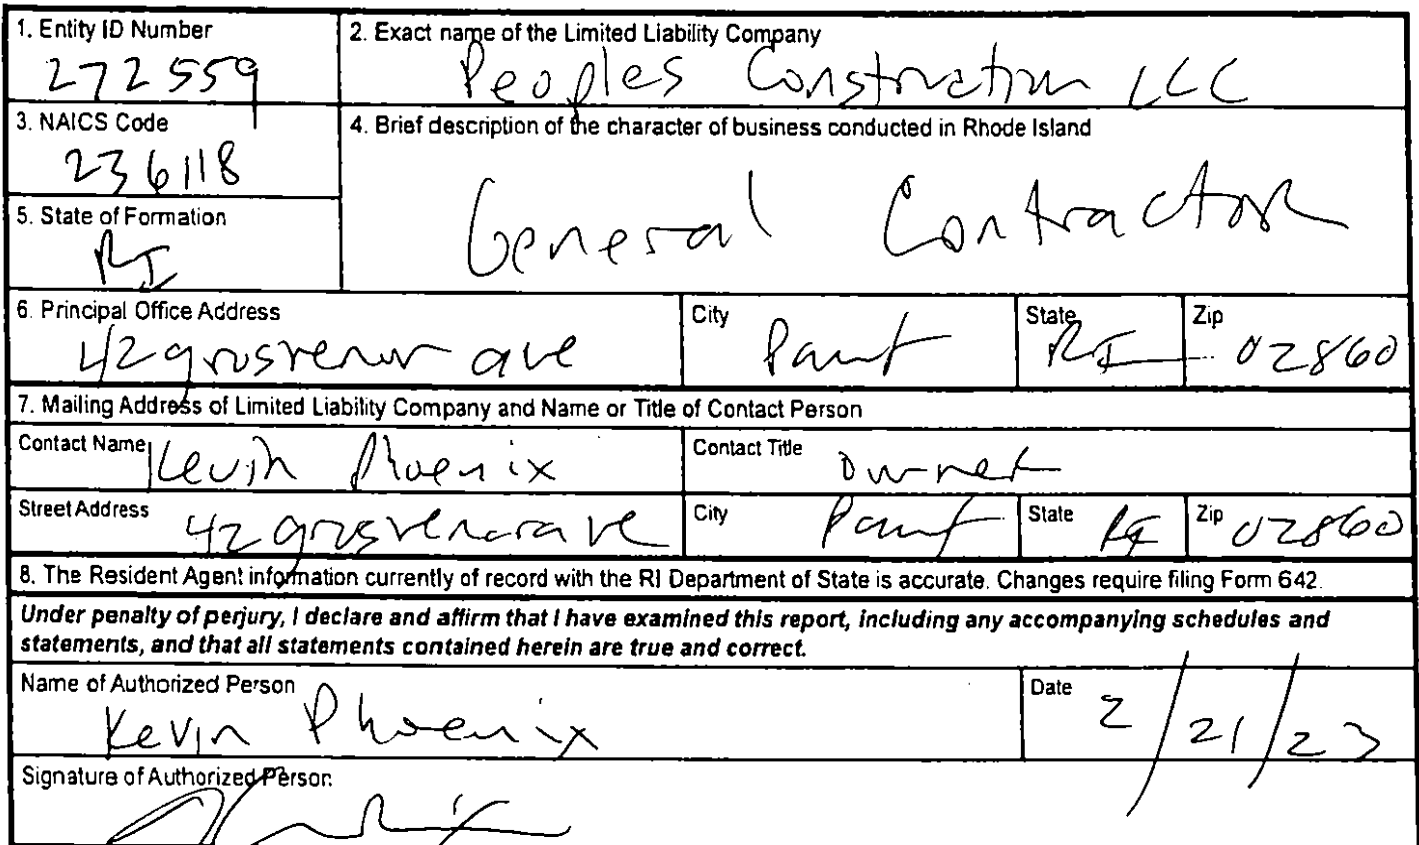 1. Entity ID Number
272559
2. Exact name of the Limited Liability Company
Peoples Construction LLC
3. NAICS Code
236118
4. Brief description of the character of business conducted in Rhode Island
General Contractor
5. State of Formation
RI
6. Principal Office Address
42 grosvenor ave
City
Pawt
State
RI
Zip
02860
7. Mailing Address of Limited Liability Company and Name or Title of Contact Person
Contact Name
Kevin Phoenix
Contact Title
owner
Street Address
42 grosvenor ave
City
Pawt
State
RI
Zip
02860
8. The Resident Agent information currently of record with the RI Department of State is accurate. Changes require filing Form 642.
Under penalty of perjury, I declare and affirm that I have examined this report, including any accompanying schedules and
statements, and that all statements contained herein are true and correct.
Name of Authorized Person
Kevin Phoenix
Date
2/21/23
Signature of Authorized Person